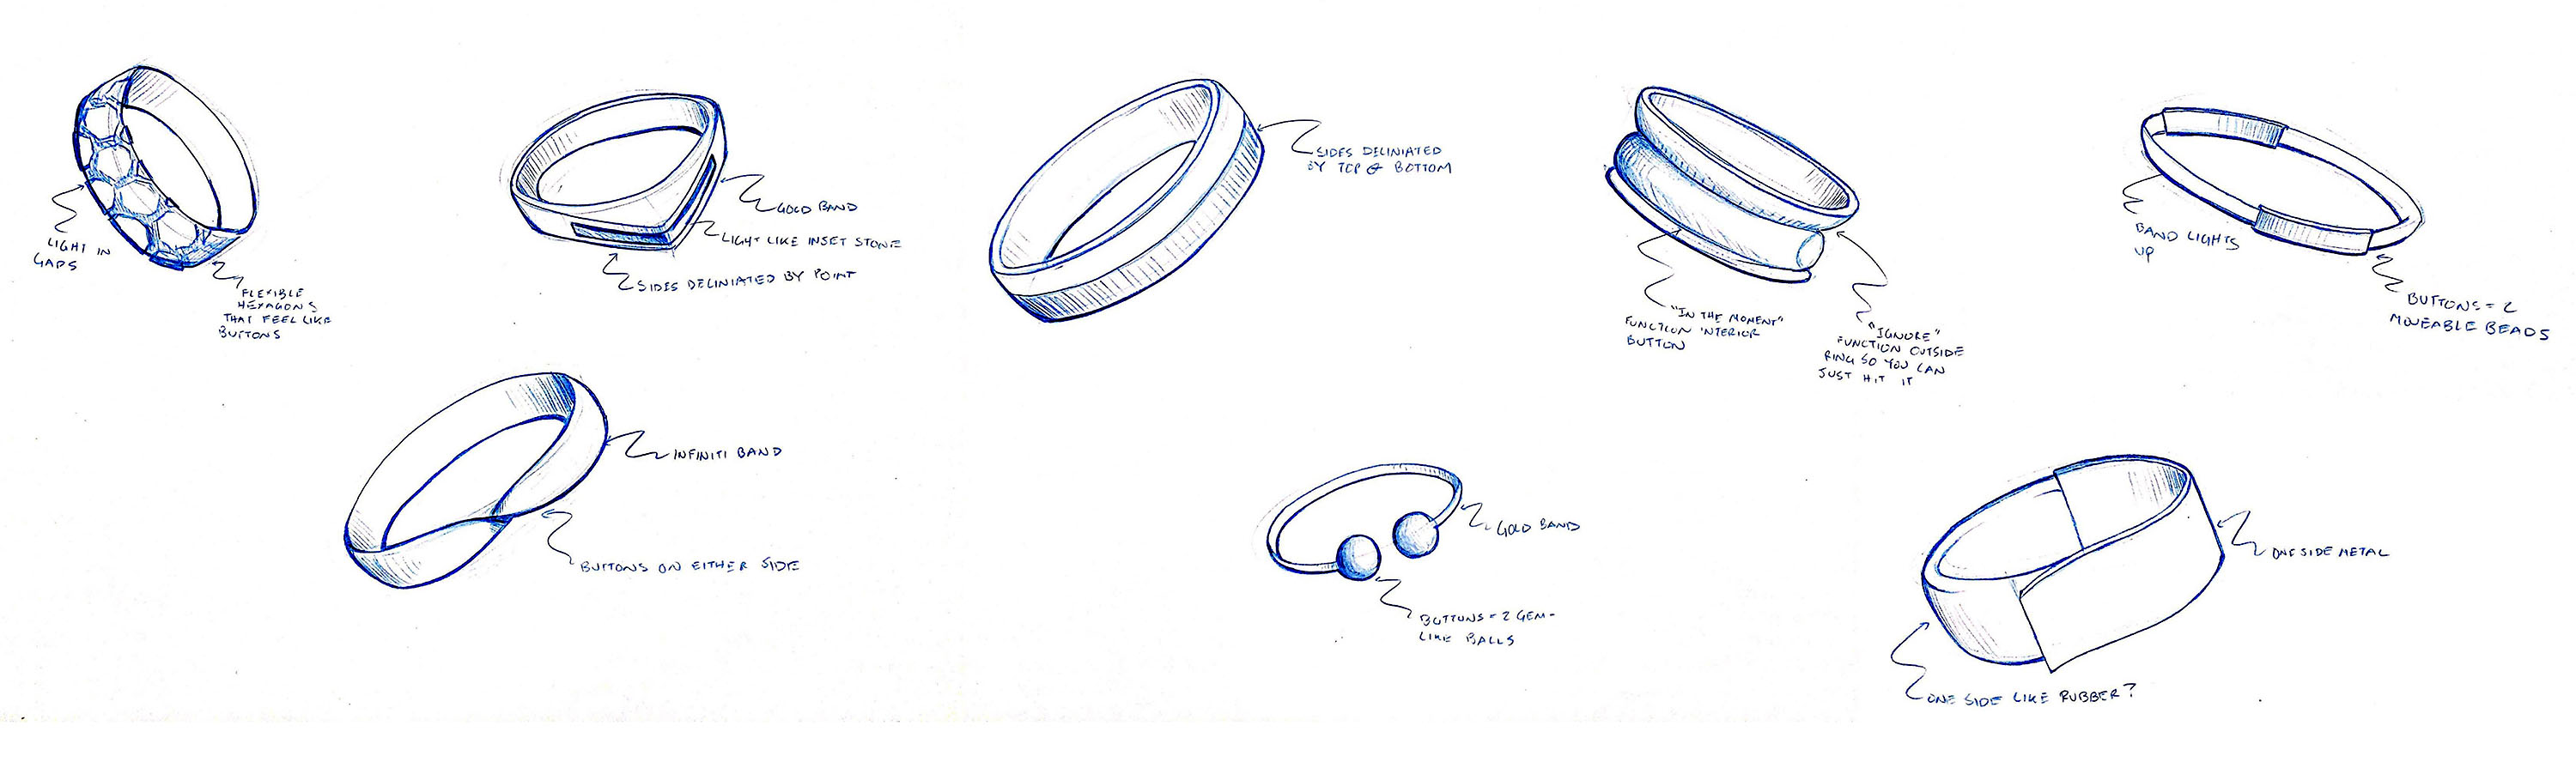 LIGHT IN
GAPS
FLEXIBLE
HEXAGONS
THAT FEEL LIKE
BUTTONS
GOLD BAND
LIGHT LIKE INSET STONE
SIDES DELINIATED BY POINT
SIDES DELINIATED
BY TOP & BOTTOM
"IN THE MOMENT"
FUNCTION INTERIOR
BUTTON
"IGNORE"
FUNCTION OUTSIDE
RING SO YOU CAN
JUST HIT IT
BAND LIGHTS
UP
BUTTONS = 2
MOVEABLE BEADS
INFINITI BAND
BUTTONS ON EITHER SIDE
GOLD BAND
BUTTONS = 2 GEM-
LIKE BALLS
ONE SIDE METAL
ONE SIDE LIKE RUBBER?